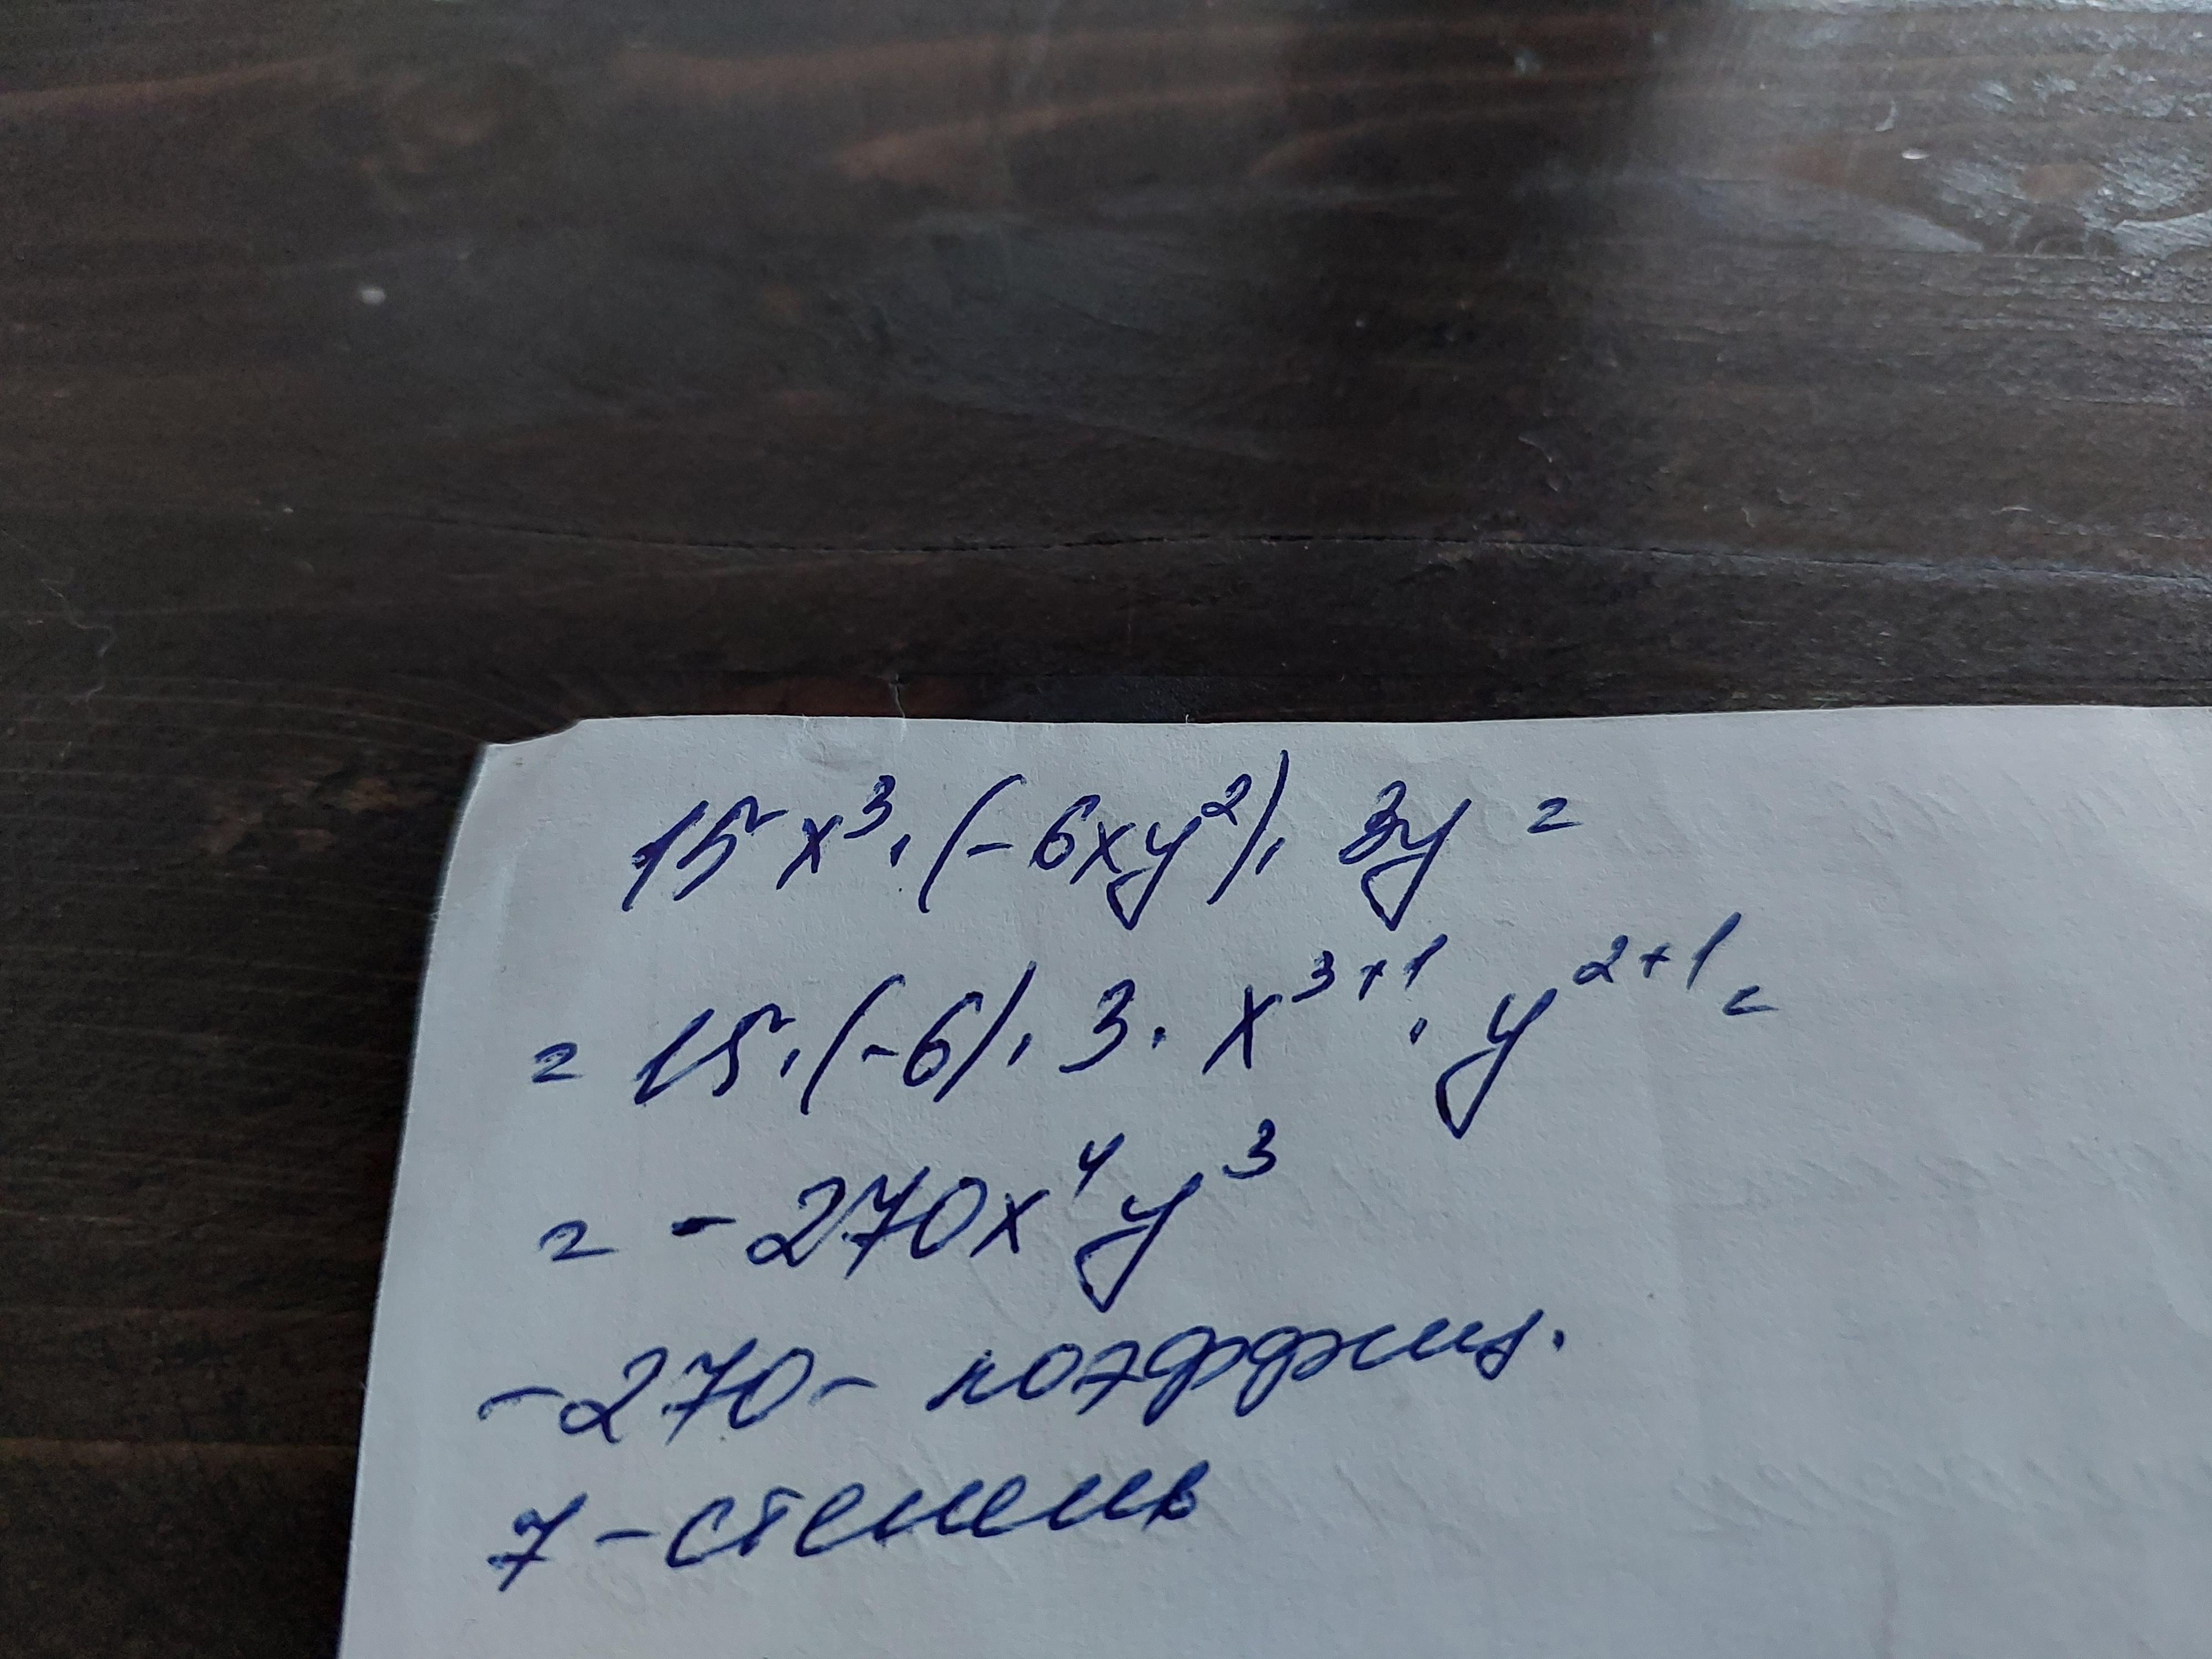 15x³·(-6xy²)·3y=
=15·(-6)·3·x³⁺¹·y²⁺¹=
=-270x⁴y³
-270-коэффиц.
7-степень